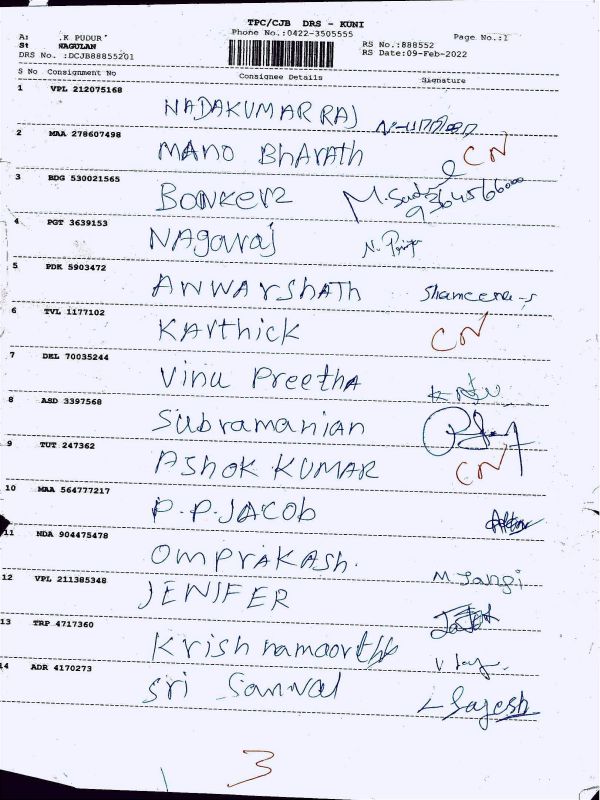 TPC/CJB DRS - KUNI
Phone No.:0422-3505555 Page No.:1
A: .K PUDUR
S: NAGULAN
RS No.:888552
DRS No. :DCJB88855201
RS Date:09-Feb-2022
S No Consignment No Consignee Details Signature
1 VPL 212075168
NADAKUMAR RAJ
2 MAA 278607498
MANO BHARATH CN
3 BDG 530021565
BANKERZ
4 PGT 3639153
NAgaraj
5 PDK 5903472
ANWARSHATH Shameena-s
6 TVL 1177102
KARthick CN
7 DEL 70035244
Vinu PreethA
8 ASD 3397568
Subramanian
9 TUT 247362
ASHOK KUMAR CN
10 MAA 564777217
P.P.JACOb
11 NDA 904475478
OMPRAKASh.
12 VPL 211385348
JENIFER
13 TRP 4717360
Krishnamoorthy
14 ADR 4170273
Sri
3